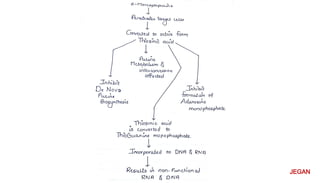 6-Mercaptopurine
Penetrates target cells
Converted to active form
Thioinosinic acid
Purine
Metabolism &
interconversion
affected
Inhibit
De Novo
Purine
Biosynthesis
Inhibit
formation of
Adenosine
monophosphate
Thioinosinic acid
is converted to
ThioGuanine monophosphate
Incorporated to DNA & RNA
Results in non-functional
RNA & DNA
JEGAN